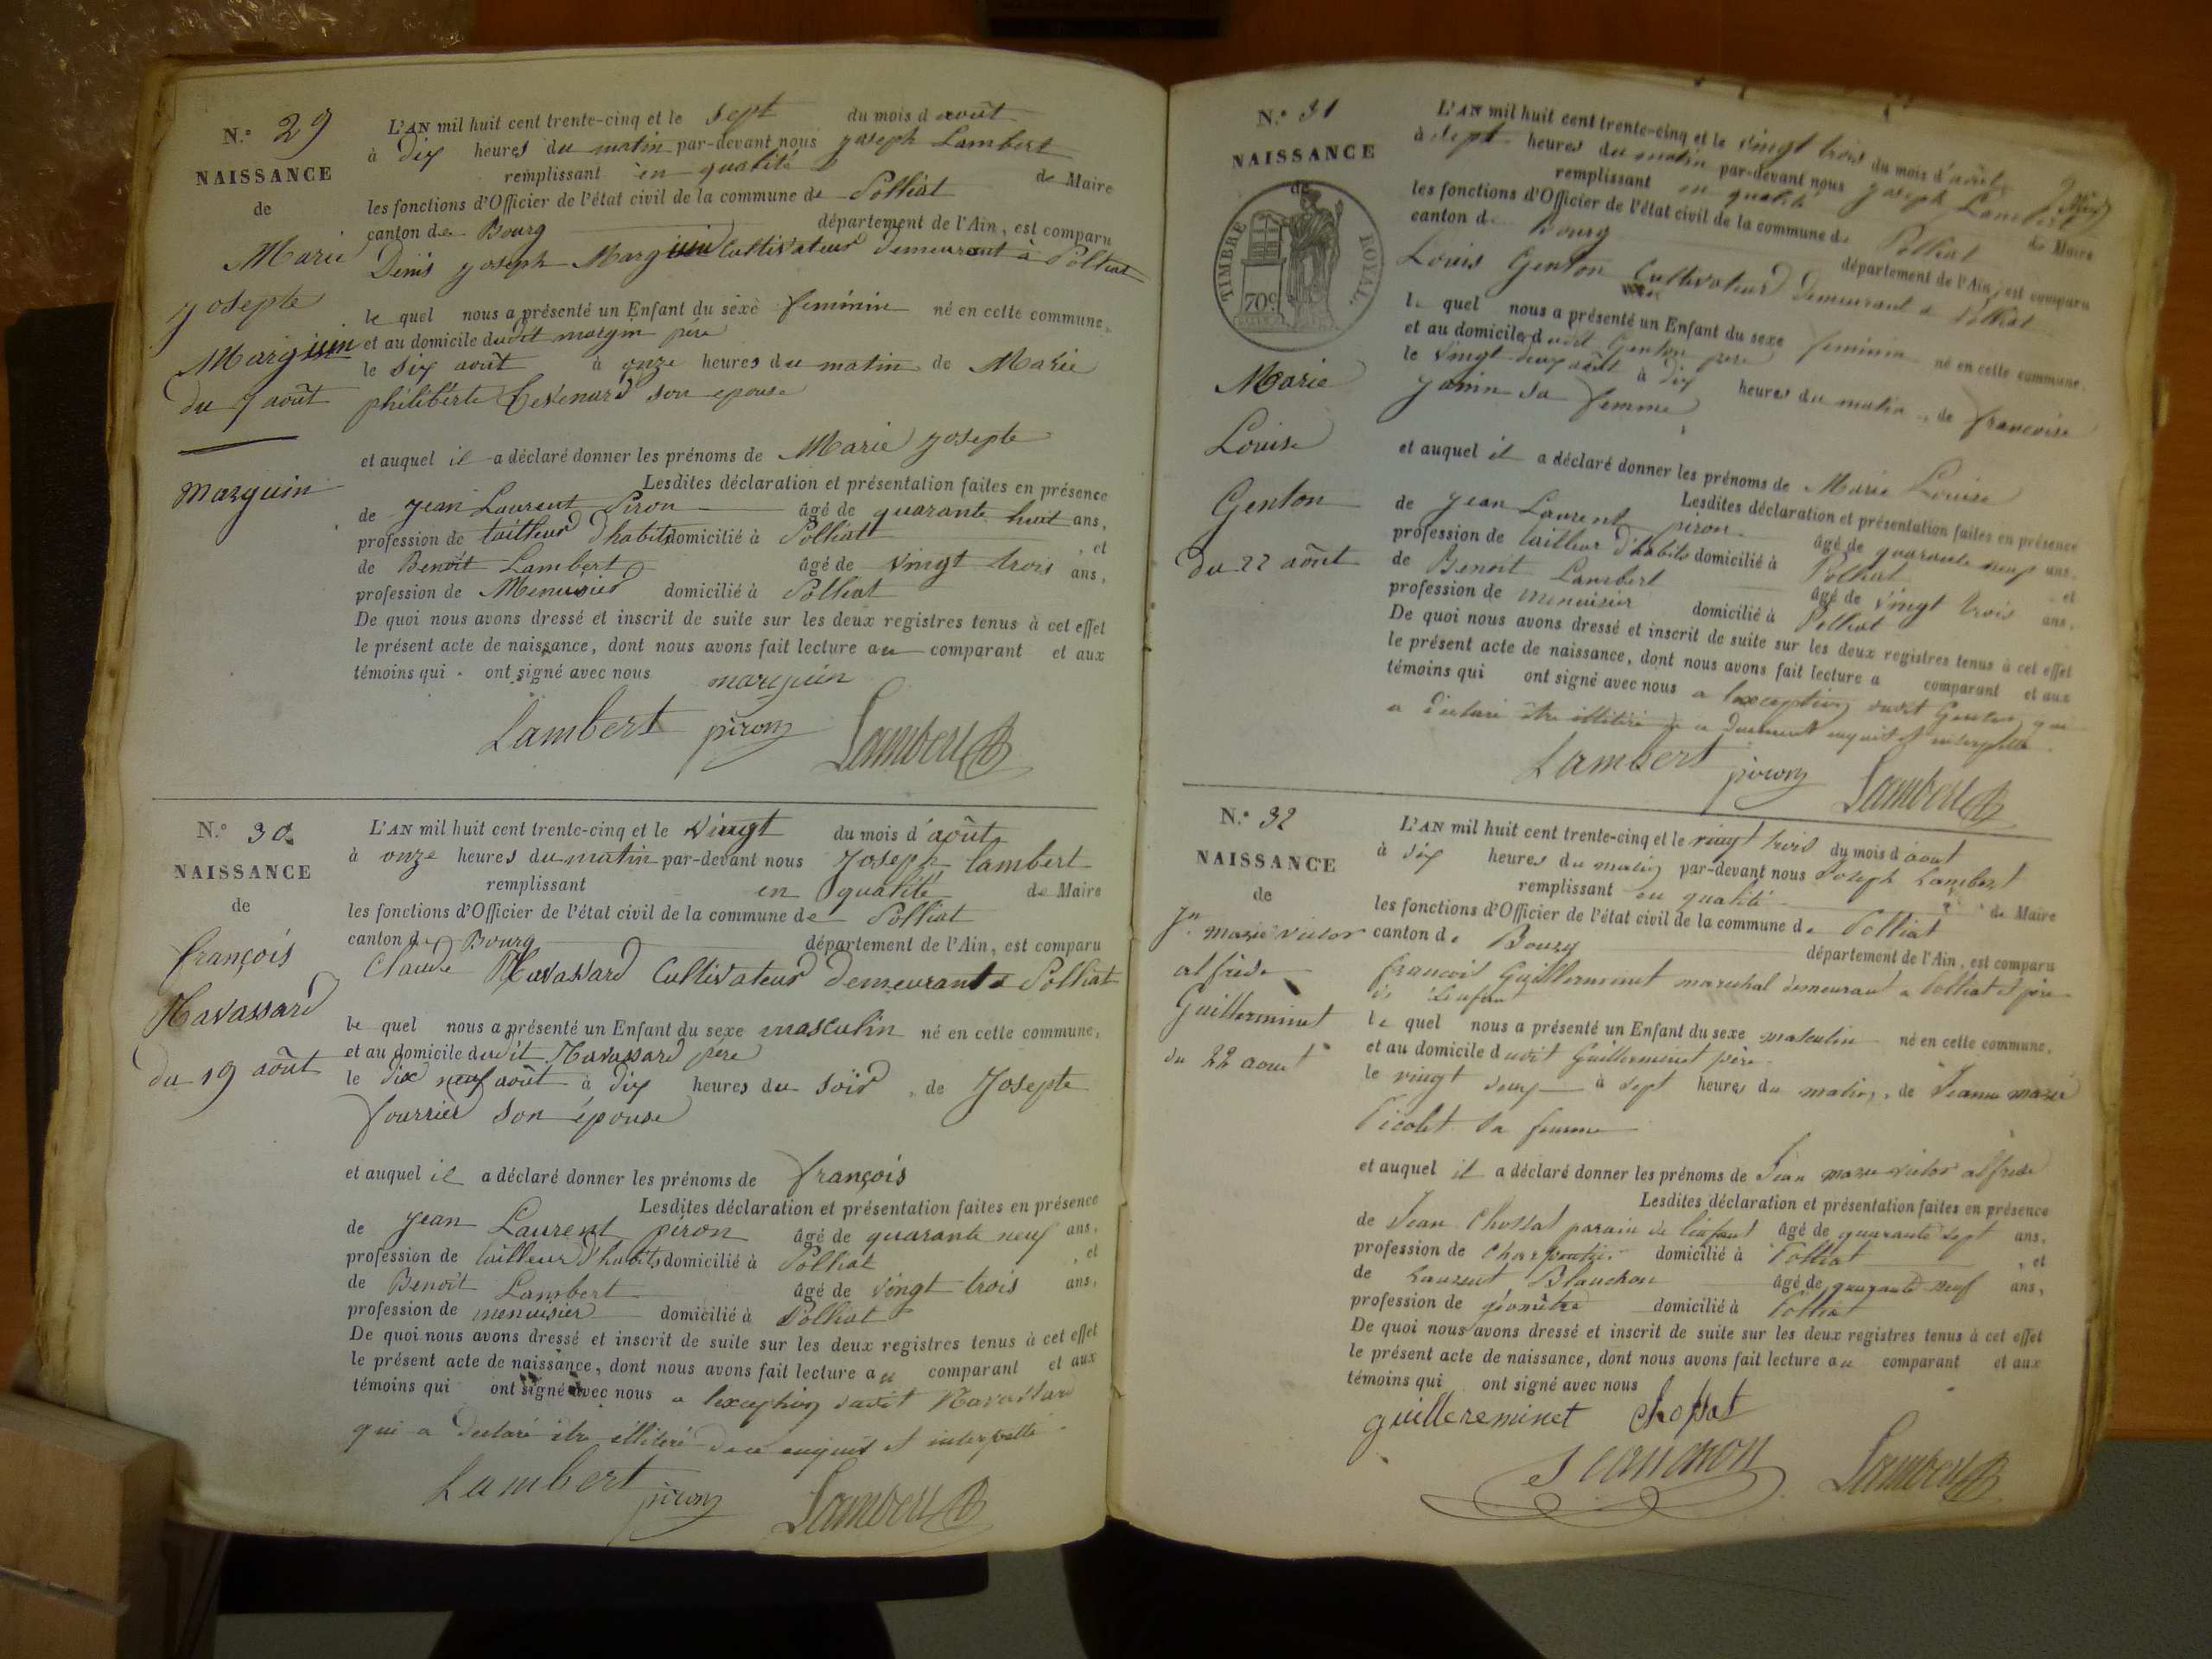 N.° 29
NAISSANCE
de
Marie
josepte
Marguin
du 7 août
Marguin
L'AN mil huit cent trente-cinq et le sept du mois d août
à dix heures du matin par-devant nous joseph Lambert
remplissant en qualité de Maire
les fonctions d'Officier de l'état civil de la commune de Polliat
canton de Bourg département de l'Ain, est comparu
Denis joseph Marguin Cultivateur demeurant à Polliat
le quel nous a présenté un Enfant du sexe feminin né en cette commune,
et au domicile dudit margin père
le six août à onze heures du matin de Marie
philiberte son epouse
et auquel il a déclaré donner les prénoms de Marie josepte
Lesdites déclaration et présentation faites en présence
de jean Laurent Piron âgé de quarante huit ans,
profession de tailleur d'habits domicilié à Polliat , et
de Benoît Lambert âgé de vingt trois ans,
profession de Menuisier domicilié à Polliat
De quoi nous avons dressé et inscrit de suite sur les deux registres tenus à cet effet
le présent acte de naissance, dont nous avons fait lecture au comparant et aux
témoins qui ont signé avec nous marguin
Lambert piron Lambert
N.° 30
NAISSANCE
de
françois
Ravassard
du 19 août
L'AN mil huit cent trente-cinq et le vingt du mois d'août
à onze heures du matin par-devant nous Joseph lambert
remplissant en qualité de Maire
les fonctions d'Officier de l'état civil de la commune de Polliat
canton de Bourg département de l'Ain, est comparu
Claude Ravassard Cultivateur demeurant à Polliat
le quel nous a présenté un Enfant du sexe masculin né en cette commune,
et au domicile dudit Ravassard père
le dix neuf août à dix heures du soir , de Josepte
fourrier son épouse
et auquel il a déclaré donner les prénoms de françois
Lesdites déclaration et présentation faites en présence
de jean Laurent piron âgé de quarante neuf ans,
profession de tailleur d'habits domicilié à Polliat , et
de Benoît Lambert âgé de vingt trois ans,
profession de menuisier domicilié à Polliat
De quoi nous avons dressé et inscrit de suite sur les deux registres tenus à cet effet
le présent acte de naissance, dont nous avons fait lecture au comparant et aux
témoins qui ont signé avec nous a lexception dudit Ravassard
qui a declaré être illitéré de ce enquis et interpellé
Lambert piron Lambert
N.° 31
NAISSANCE
de
TIMBRE ROYAL
70c
Marie
Louise
Genton
du 22 août
L'AN mil huit cent trente-cinq et le vingt trois du mois d'août
à sept heures du matin par-devant nous joseph Lambert
remplissant en qualité de Maire
les fonctions d'Officier de l'état civil de la commune de Polliat
canton de Bourg département de l'Ain, est comparu
Louis Genton Cultivateur demeurant a Polliat
le quel nous a présenté un Enfant du sexe feminin né en cette commune,
et au domicile dudit Genton père
le vingt deux août à dix heures du matin , de francoise
janin sa femme
et auquel il a déclaré donner les prénoms de Marie Louise
Lesdites déclaration et présentation faites en présence
de jean Laurent piron âgé de quarante neuf ans,
profession de tailleur d'habits domicilié à Polliat , et
de Benoit Lambert âgé de vingt trois ans,
profession de menuisier domicilié à Polliat
De quoi nous avons dressé et inscrit de suite sur les deux registres tenus à cet effet
le présent acte de naissance, dont nous avons fait lecture a comparant et aux
témoins qui ont signé avec nous a lexception dudit Genton qui
a declaré être illitéré de ce duement enquis et interpellé
Lambert piron Lambert
N.° 32
NAISSANCE
de
Jn marie victor
alfrède
Guillerminet
du 22 aout
L'AN mil huit cent trente-cinq et le vingt trois du mois d aout
à six heures du matin par-devant nous Joseph Lambert
remplissant en qualité de Maire
les fonctions d'Officier de l'état civil de la commune de Polliat
canton de Bourg département de l'Ain, est comparu
francois Guillerminet marechal demeurant a Polliat et père
de l'enfant
le quel nous a présenté un Enfant du sexe masculin né en cette commune,
et au domicile dudit Guillerminet père
le vingt deux à sept heures du matin, de Jeanne marie
Picolet sa femme
et auquel il a déclaré donner les prénoms de Jean marie victor alfrede
Lesdites déclaration et présentation faites en présence
de Jean Chossat parain de l'enfant âgé de quarante sept ans,
profession de charpentier domicilié à Polliat , et
de Laurent Blanchon âgé de quarante neuf ans,
profession de géomètre domicilié à Polliat
De quoi nous avons dressé et inscrit de suite sur les deux registres tenus à cet effet
le présent acte de naissance, dont nous avons fait lecture au comparant et aux
témoins qui ont signé avec nous
guillereminet Chossat
Lambert